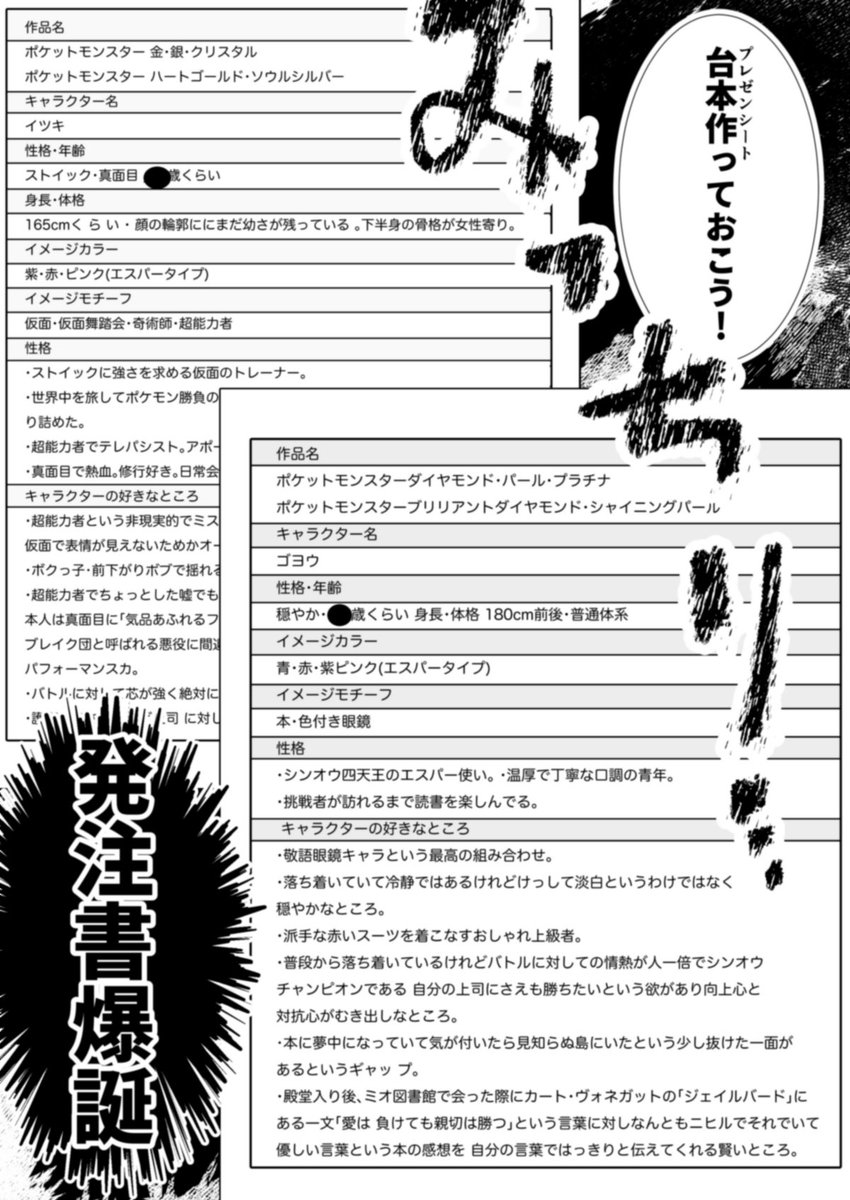 台本作っておこう!
プレゼンシート
みっちり…
作品名
ポケットモンスター 金・銀・クリスタル
ポケットモンスター ハートゴールド・ソウルシルバー
キャラクター名
イツキ
性格・年齢
ストイック・真面目 歳くらい
身長・体格
165cmく ら い・ 顔の輪郭ににまだ幼さが残っている 。下半身の骨格が女性寄り。
イメージカラー
紫・赤・ピンク(エスパータイプ)
イメージモチーフ
仮面・仮面舞踏会・奇術師・超能力者
性格
・ストイックに強さを求める仮面のトレーナー。
・世界中を旅してポケモン勝負の
り詰めた。
・超能力者でテレパシスト。アポー
・真面目で熱血。修行好き。日常会
キャラクターの好きなところ
・超能力者という非現実的でミス
仮面で表情が見えないためかオー
・ボクっ子・前下がりボブで揺れる
・超能力者でちょっとした嘘でも
本人は真面目に「気品あふれるフ
ブレイク団と呼ばれる悪役に間違
パフォーマンスカ。
・バトルに対して芯が強く絶対に
司 に対し
作品名
ポケットモンスターダイヤモンド・パール・プラチナ
ポケットモンスターブリリアントダイヤモンド・シャイニングパール
キャラクター名
ゴヨウ
性格・年齢
穏やか・ 歳くらい 身長・体格 180cm前後・普通体系
イメージカラー
青・赤・紫ピンク(エスパータイプ)
イメージモチーフ
本・色付き眼鏡
性格
・シンオウ四天王のエスパー使い。・温厚で丁寧な口調の青年。
・挑戦者が訪れるまで読書を楽しんでる。
キャラクターの好きなところ
・敬語眼鏡キャラという最高の組み合わせ。
・落ち着いていて冷静ではあるけれどけっして淡白というわけではなく
穏やかなところ。
・派手な赤いスーツを着こなすおしゃれ上級者。
・普段から落ち着いているけれどバトルに対しての情熱が人一倍でシンオウ
チャンピオンである 自分の上司にさえも勝ちたいという欲があり向上心と
対抗心がむき出しなところ。
・本に夢中になっていて気が付いたら見知らぬ島にいたという少し抜けた一面が
あるというギャッ プ。
・殿堂入り後、ミオ図書館で会った際にカート・ヴォネガットの「ジェイルバード」に
ある一文「愛は 負けても親切は勝つ」という言葉に対しなんともニヒルでそれでいて
優しい言葉という本の感想を 自分の言葉ではっきりと伝えてくれる賢いところ。
発注書爆誕